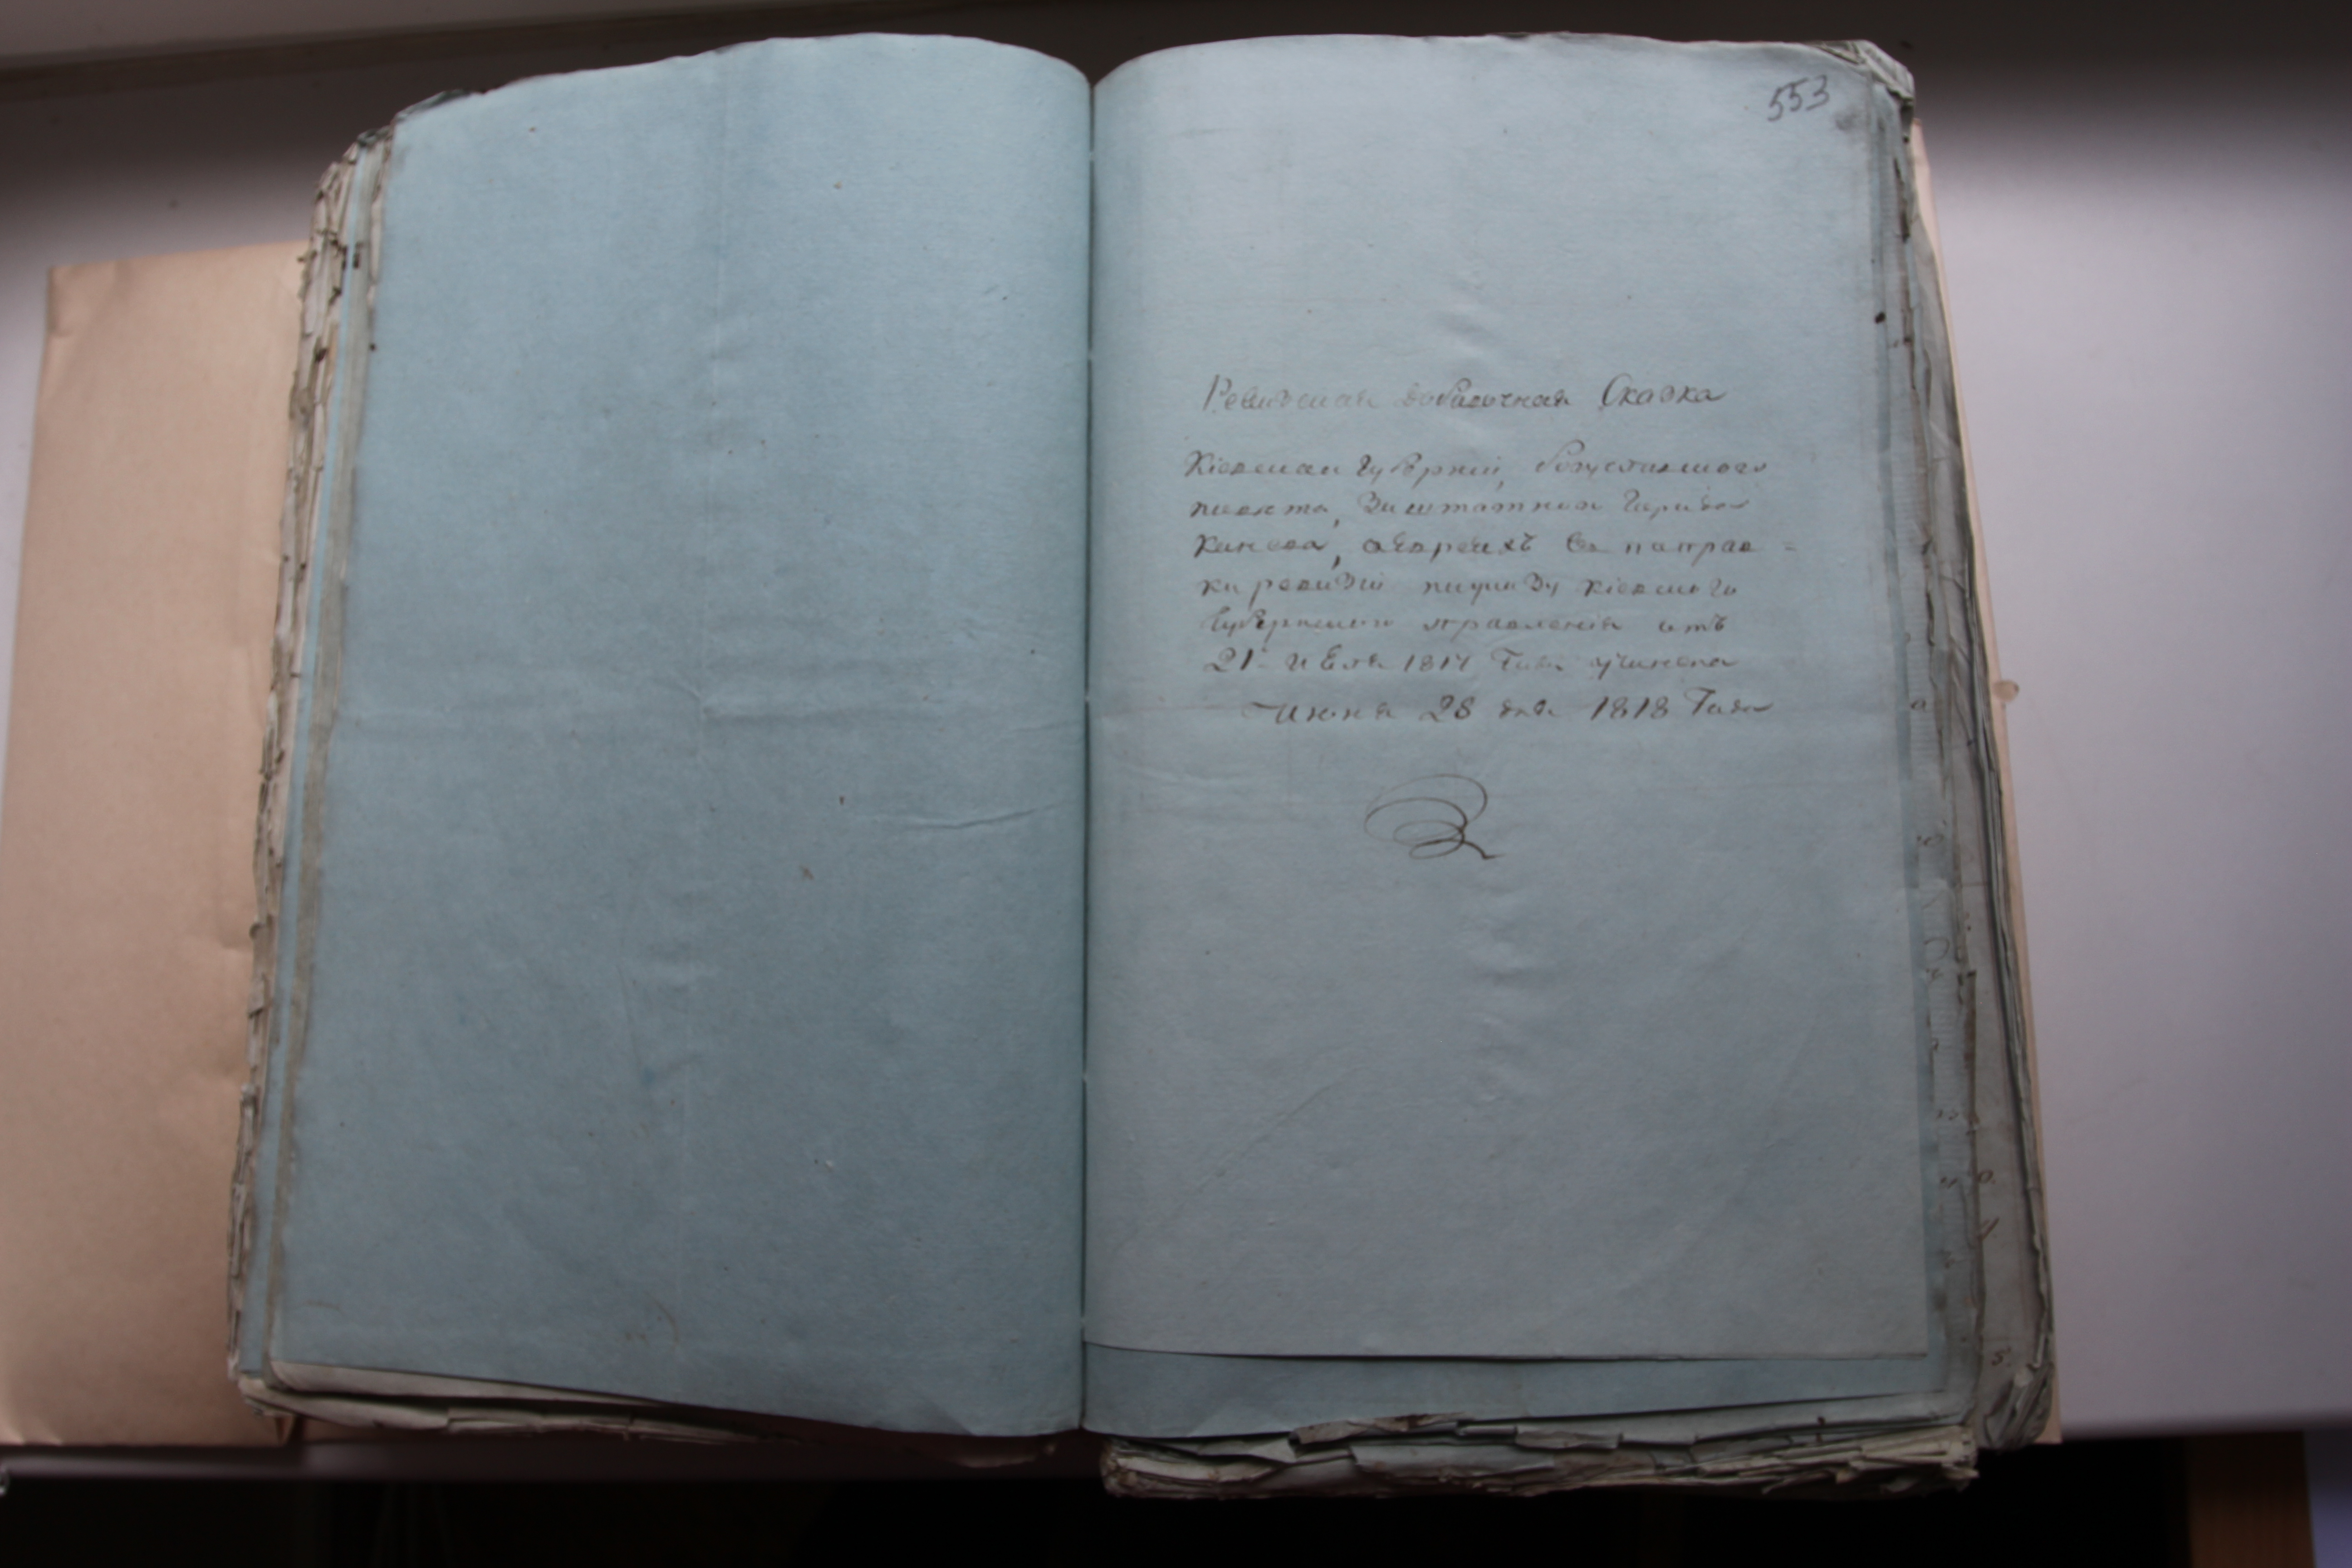 553
Ревизская добавочная Сказка
Кіевской Губерніи, богуславского
повета, Заштатного Города
Канева, оевреяхъ
ки ревизіи поуказу Кіевского
Губернского правления отъ
21 июля 1817 Года учинена
Июня 28 дня 1818 Года